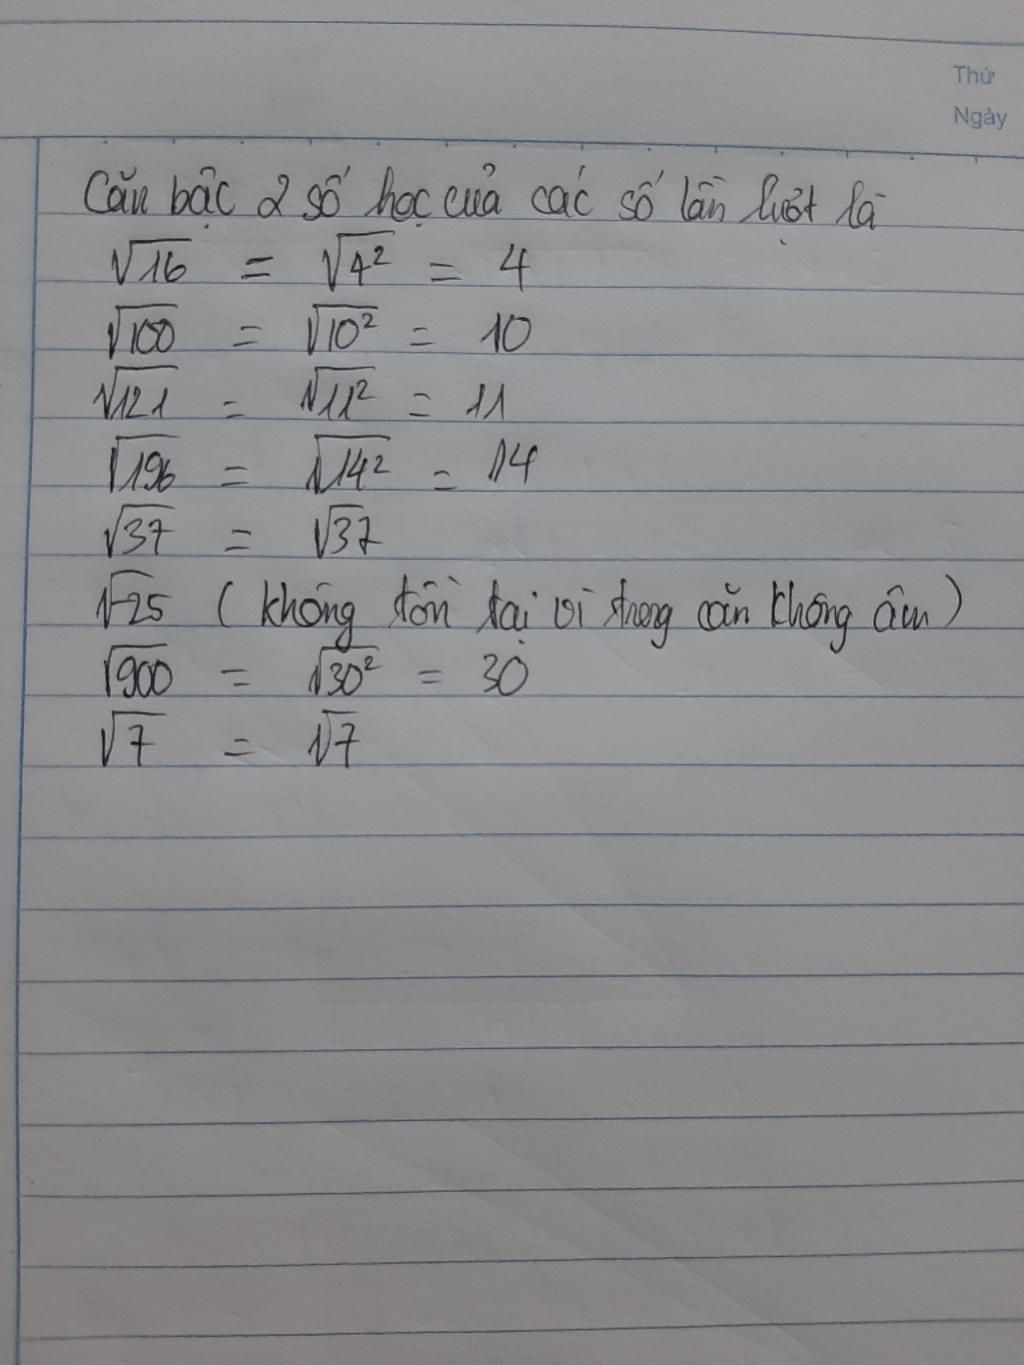 Thứ
Ngày
Căn bậc 2 số học của các số lần lượt là
√16 = √4² = 4
√100 = √10² = 10
√121 = √11² = 11
√196 = √14² = 14
√37 = √37
√-25 (không tồn tại vì trong căn không âm)
√900 = √30² = 30
√7 = √7